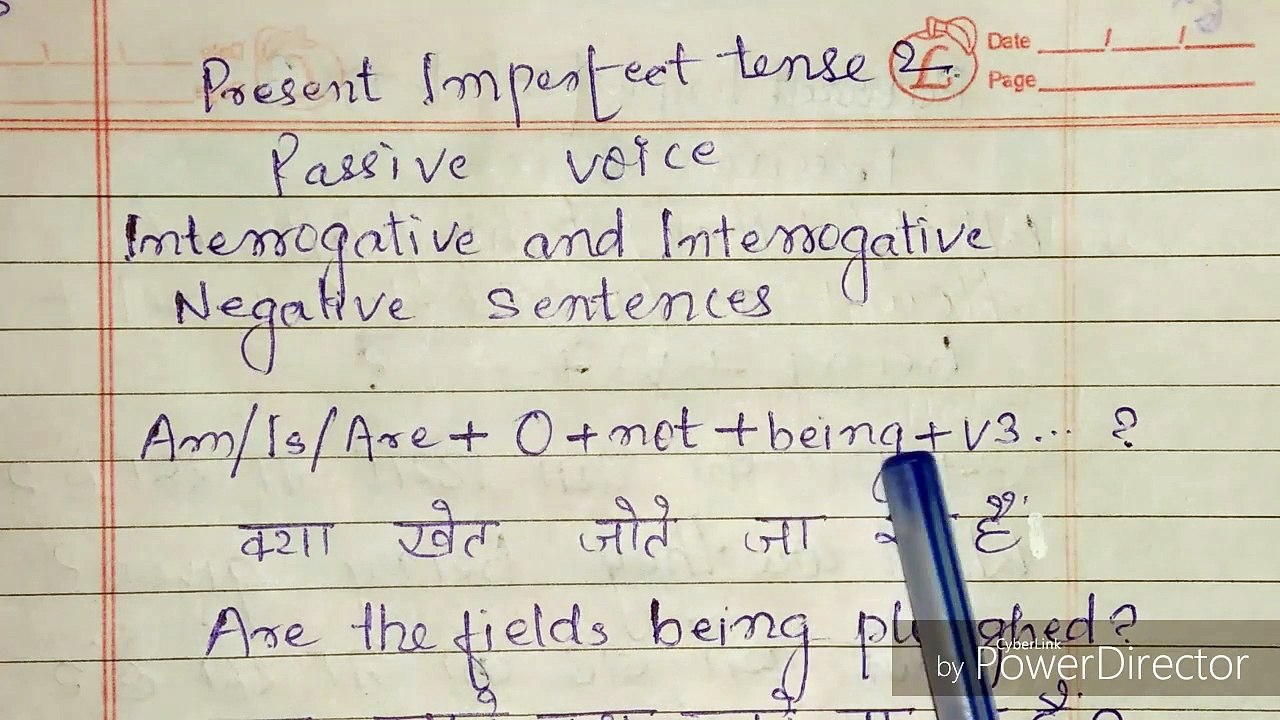 Present Imperfect tense
Date / /
Page
Passive voice
Interrogative and Interrogative
Negative sentences
Am/Is/Are + O + not + being + V3... ?
क्या खेत जोते जा हैं
Are the fields being ?
CyberLink
by PowerDirector